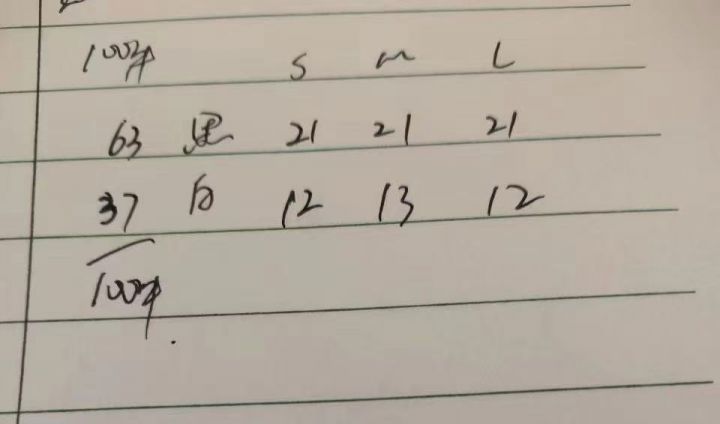 100件 S M L
63 黑 21 21 21
37 白 12 13 12
100件.